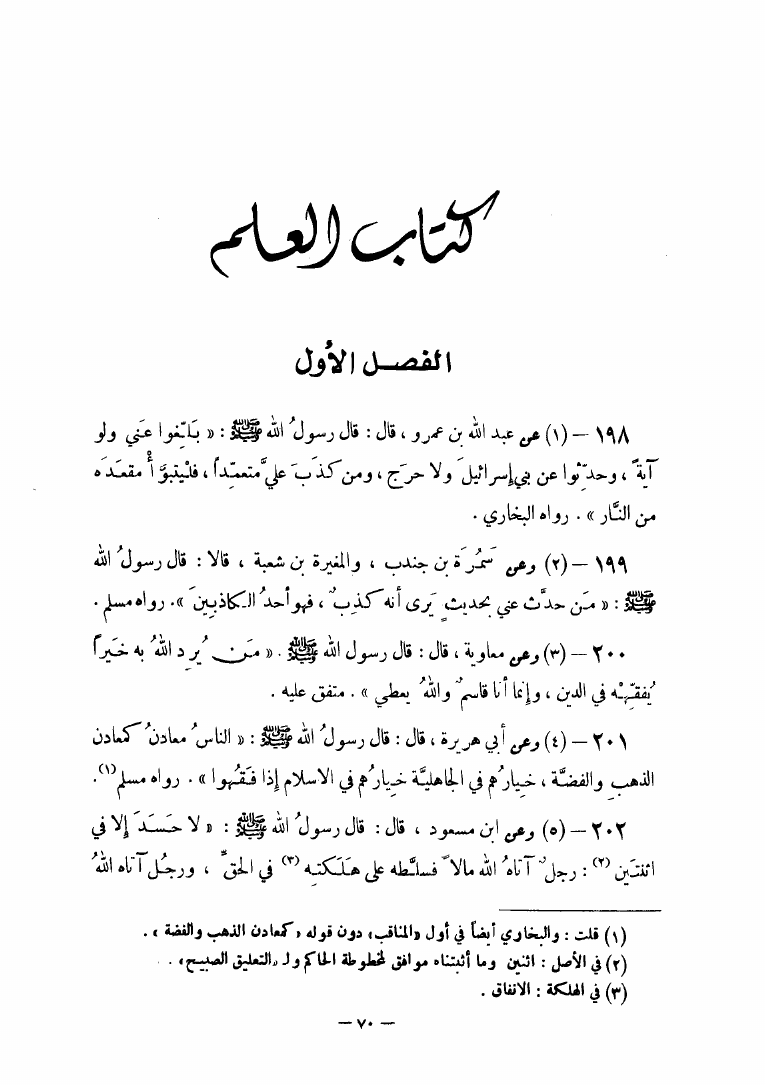 كتاب العلم
الفصل الأول
١٩٨ – (١) عن عبد الله بن عمرو ، قال : قال رسولُ الله ﷺ : « بَلِّغوا عَني ولو
آيةً ، وحدِّثوا عن بني إسرائيلَ ولا حرَج ، ومن كذَبَ عليَّ متعمِّداً ، فلْيتبوَّأْ مقعدَه
من النَّار » . رواه البخاري .
١٩٩ – (٢) وعن سَمُرَة بن جندب ، والمغيرة بن شعبة ، قالا : قال رسولُ الله
ﷺ : « مَن حدَّث عني بحديثٍ يَرى أنه كذِبٌ ، فهو أحدُ الكاذبِينَ ». رواه مسلم .
٢٠٠ – (٣) وعن معاوية ، قال : قال رسول الله ﷺ . « مَن يُرِد اللهُ به خَيراً
يُفقّهْه في الدين ، وإنما أنا قاسمٌ واللهُ يعطي » . متفق عليه .
٢٠١ – (٤) وعن أبي هريرة ، قال : قال رسولُ الله ﷺ : « الناسُ معادنُ كمعادن
الذهبِ والفضَّة ، خيارُهم في الجاهليَّة خيارُهم في الاسلام إذا فَقُهوا » . رواه مسلم(١).
٢٠٢ – (٥) وعن ابن مسعود ، قال : قال رسولُ الله ﷺ : « لا حَسَدَ إلا في
اثنتَين (٢) : رجلٌ آتاهُ الله مالاً فسلَّطه على هَلَكتِه (٣) في الحقِّ ، ورجُل آتاه اللهُ
(١) قلت : والبخاري أيضاً في أول «المناقب» دون قوله «كمعادن الذهب والفضة » .
(٢) في الأصل : اثنين وما أثبتناه موافق لمخطوطة الحاكم ولـ «التعليق الصبيح» .
(٣) في الهلكة : الانفاق .
– ٧٠ –